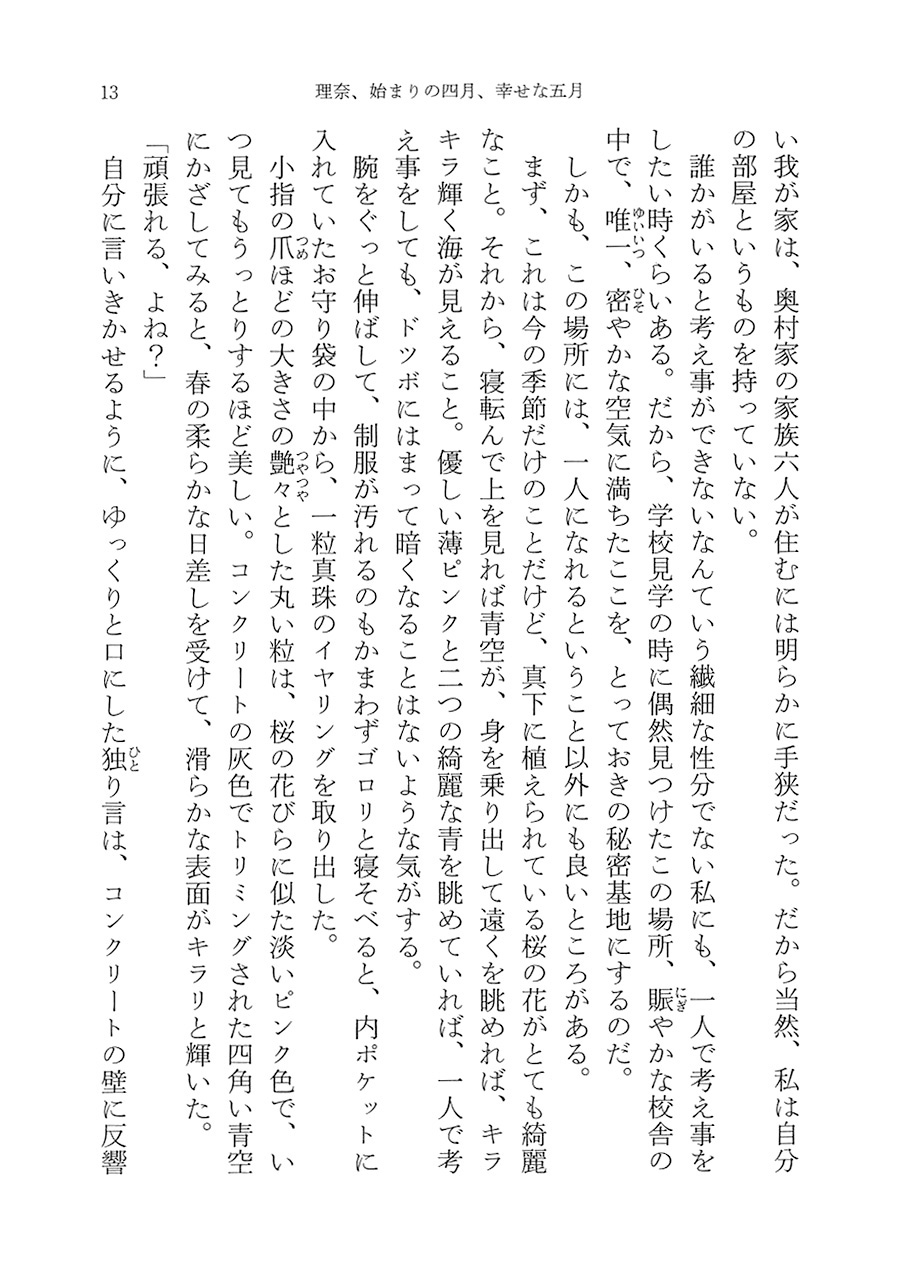 13
理奈、始まりの四月、幸せな五月
い我が家は、奥村家の家族六人が住むには明らかに手狭だった。だから当然、私は自分
の部屋というものを持っていない。
誰かがいると考え事ができないなんていう繊細な性分でない私にも、一人で考え事を
したい時くらいある。だから、学校見学の時に偶然見つけたこの場所、賑やかな校舎の
中で、唯一、密やかな空気に満ちたここを、とっておきの秘密基地にするのだ。
しかも、この場所には、一人になれるということ以外にも良いところがある。
まず、これは今の季節だけのことだけど、真下に植えられている桜の花がとても綺麗
なこと。それから、寝転んで上を見れば青空が、身を乗り出して遠くを眺めれば、キラ
キラ輝く海が見えること。優しい薄ピンクと二つの綺麗な青を眺めていれば、一人で考
え事をしても、ドツボにはまって暗くなることはないような気がする。
腕をぐっと伸ばして、制服が汚れるのもかまわずゴロリと寝そべると、内ポケットに
入れていたお守り袋の中から、一粒真珠のイヤリングを取り出した。
小指の爪ほどの大きさの艶々とした丸い粒は、桜の花びらに似た淡いピンク色で、い
つ見てもうっとりするほど美しい。コンクリートの灰色でトリミングされた四角い青空
にかざしてみると、春の柔らかな日差しを受けて、滑らかな表面がキラリと輝いた。
「頑張れる、よね？」
自分に言いきかせるように、ゆっくりと口にした独り言は、コンクリートの壁に反響